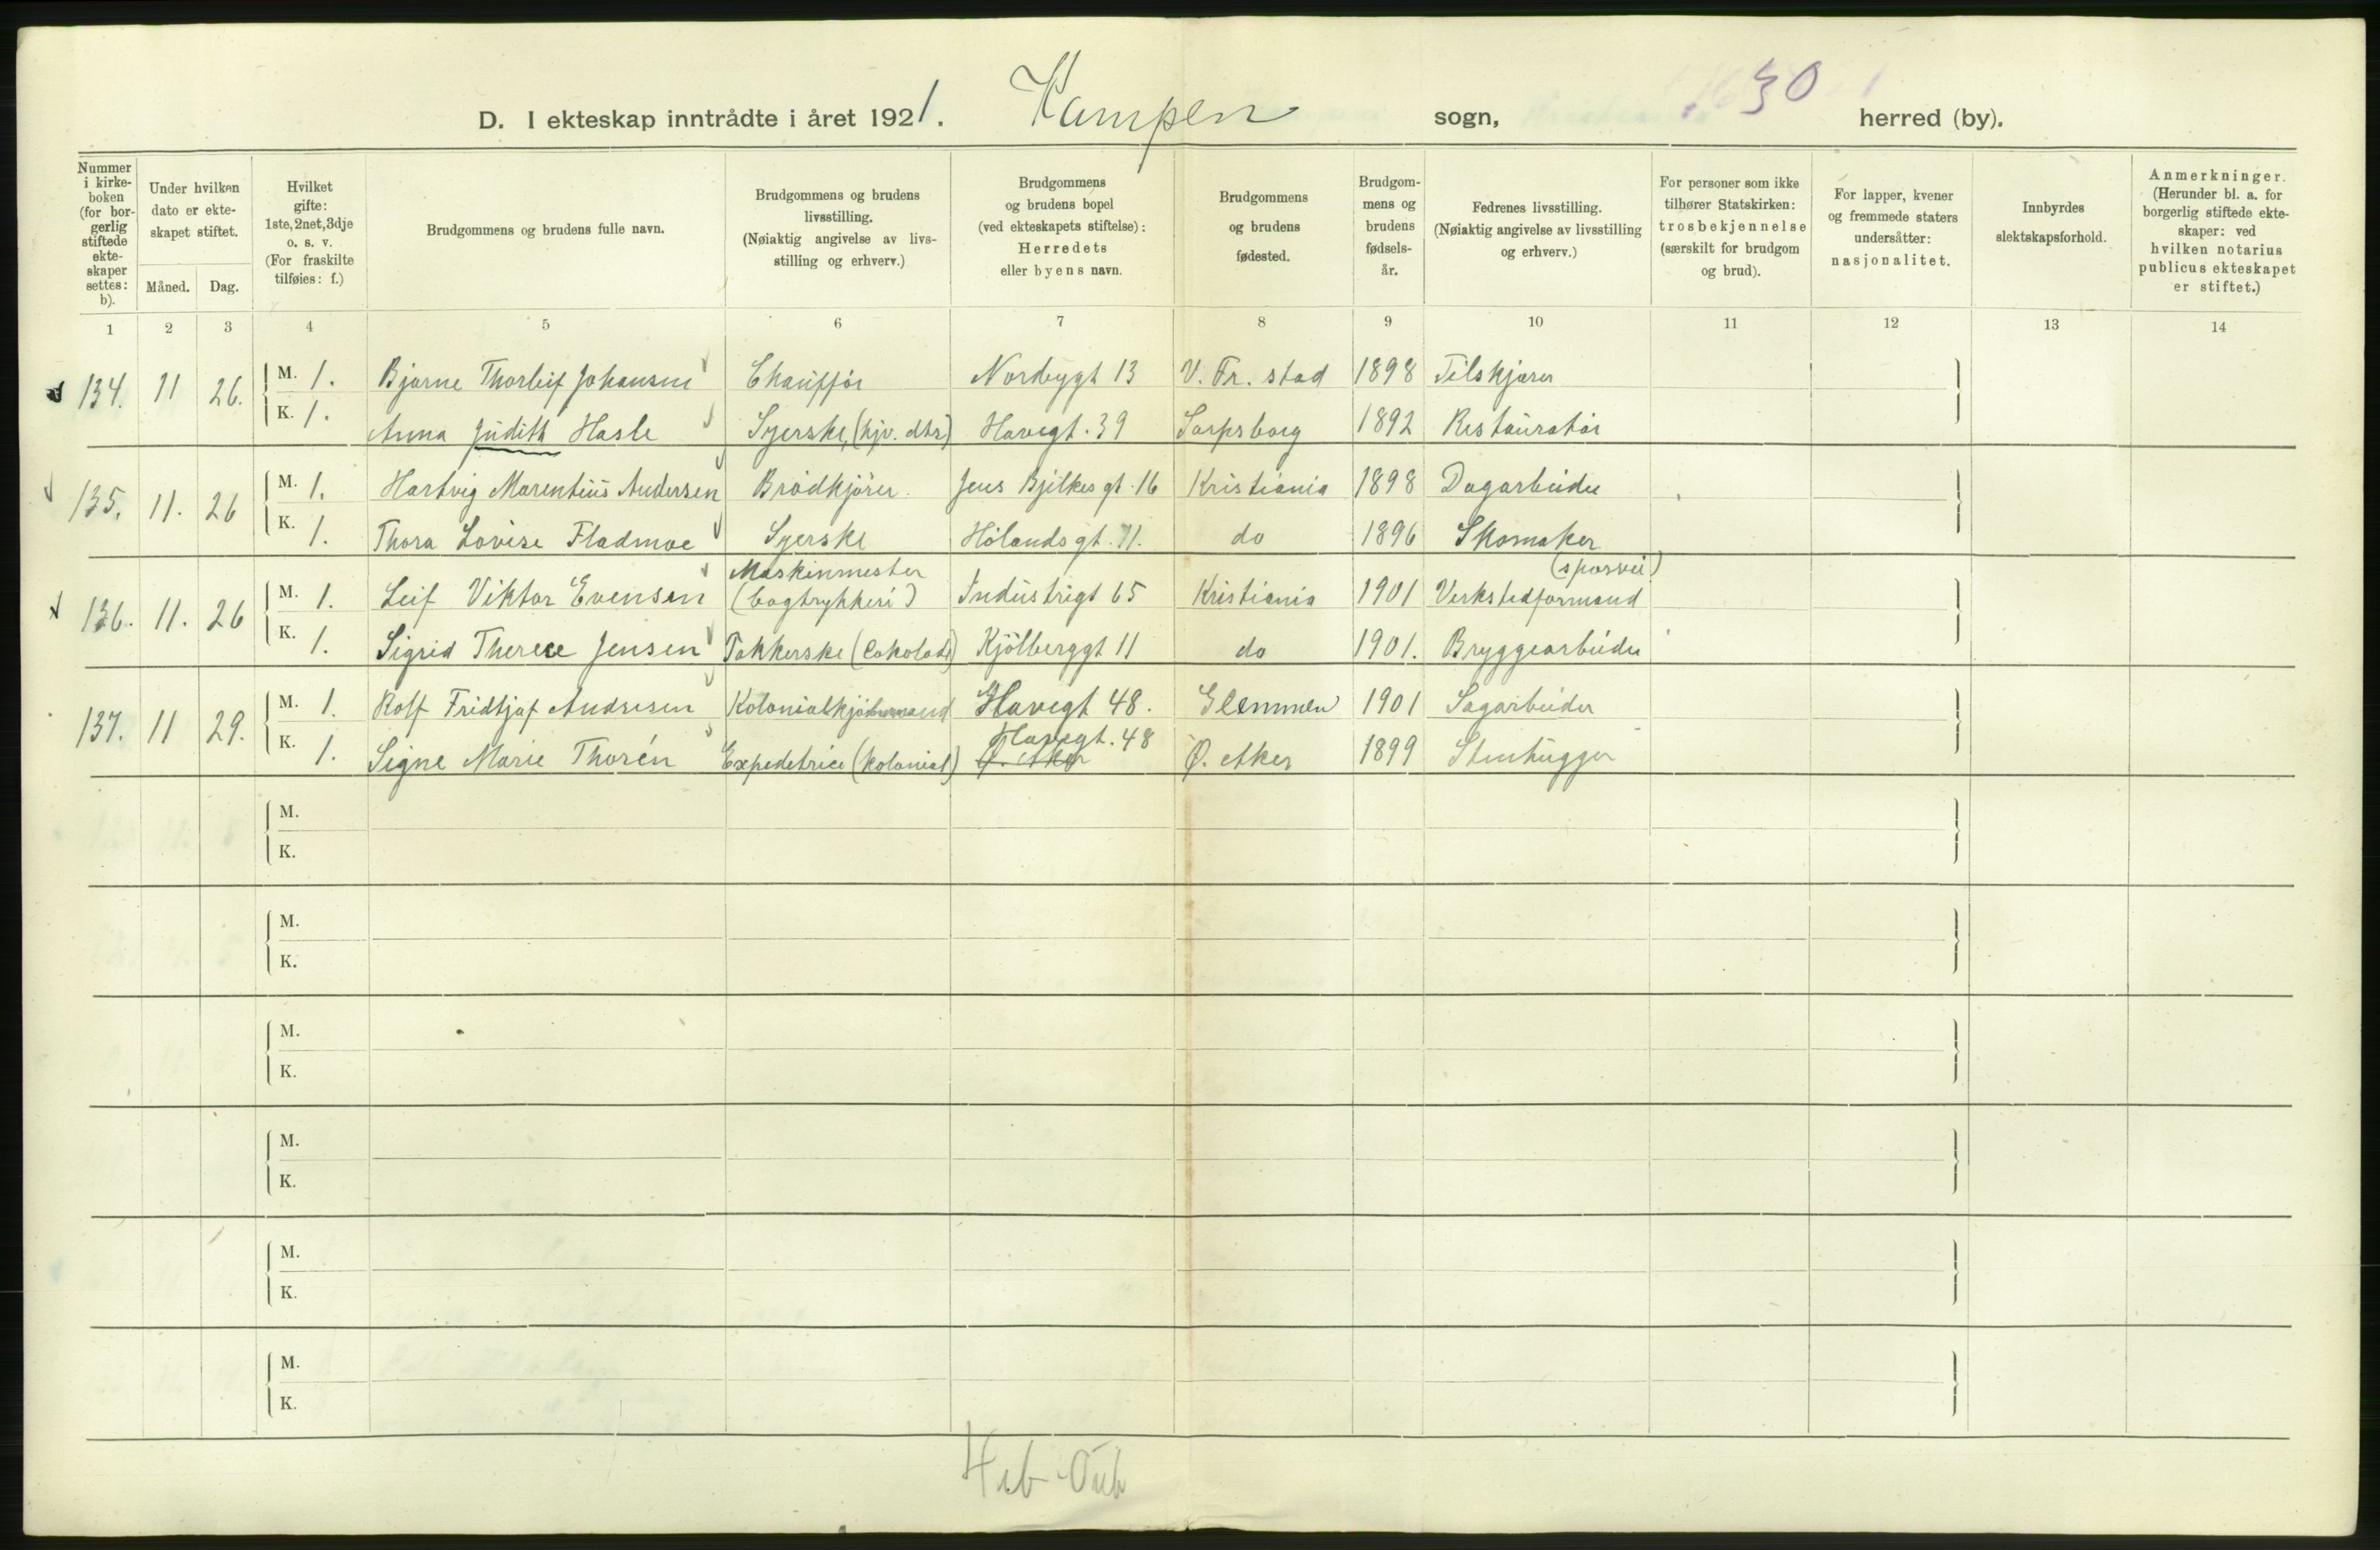 D. I ekteskap inntrådte i året 1921. Kampen sogn, 30 herred (by).
Nummer i kirke- boken (for bor- gerlig stiftede ekte- skaper settes: b).
Under hvilken dato er ekte- skapet stiftet.
Måned. Dag.
Hvilket gifte: 1ste, 2net, 3dje o. s. v. (For fraskilte tilføies: f.)
Brudgommens og brudens fulle navn.
Brudgommens og brudens livsstilling. (Nøiaktig angivelse av livs- stilling og erhverv.)
Brudgommens og brudens bopel (ved ekteskapets stiftelse): Herredets eller byens navn.
Brudgommens og brudens fødested.
Brudgom- mens og brudens fødsels- år.
Fedrenes livsstilling. (Nøiaktig angivelse av livsstilling og erhverv.)
For personer som ikke tilhører Statskirken: trosbekjennelse (særskilt for brudgom og brud).
For lapper, kvener og fremmede staters undersåtter: nasjonalitet.
Innbyrdes slektskapsforhold.
Anmerkninger. (Herunder bl. a. for borgerlig stiftede ekte- skaper: ved hvilken notarius publicus ekteskapet er stiftet.)
1 2 3 4 5 6 7 8 9 10 11 12 13 14
134. 11 26. M. 1. Bjarne Thorleif Johansen Chauffør Nordbygt 13 V. Fr. stad 1898 Filskjærer
K. 1. Anna Judith Hasle Syerske (hjv. dtr) Havegt. 39 Sarpsborg 1892 Restauratør
135. 11. 26 M. 1. Hartvig Marentius Andersen Brødkjører. Jens Bjelkes gt. 16 Kristiania 1898 Dagarbeider
K. 1. Thora Lovise Fladmoe Syerske Hølandsgt. 71. do 1896 Skomaker
136. 11. 26 M. 1. Leif Viktor Evensen Maskinmester (bogtrykkeri) Industrigt 65 Kristiania 1901 Verkstedformand (sporvei)
K. 1. Sigrid Therese Jensen Pakkerske (Cokolade) Kjølberggt 11 do 1901. Bryggearbeider
137. 11 29. M. 1. Rolf Fridtjof Andresen Kolonialkjøbmand Havegt 48. Glemmen 1901 Sagarbeider
K. 1. Signe Marie Thorén Expeditrice (kolonial) Havegt. 48 Ø. Aker Ø. Aker 1899 Stenhugger
M.
K.
M.
K.
M.
K.
M.
K.
M.
K.
M.
K.